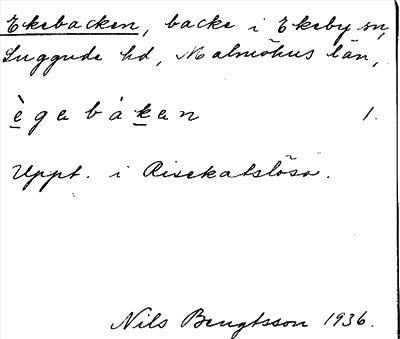 Ekebacken, backe i Ekeby sn,
Luggude hd, Malmöhus län,
ègabàkan 1.
Uppt. i Risekatslösa.
Nils Bengtsson 1936.